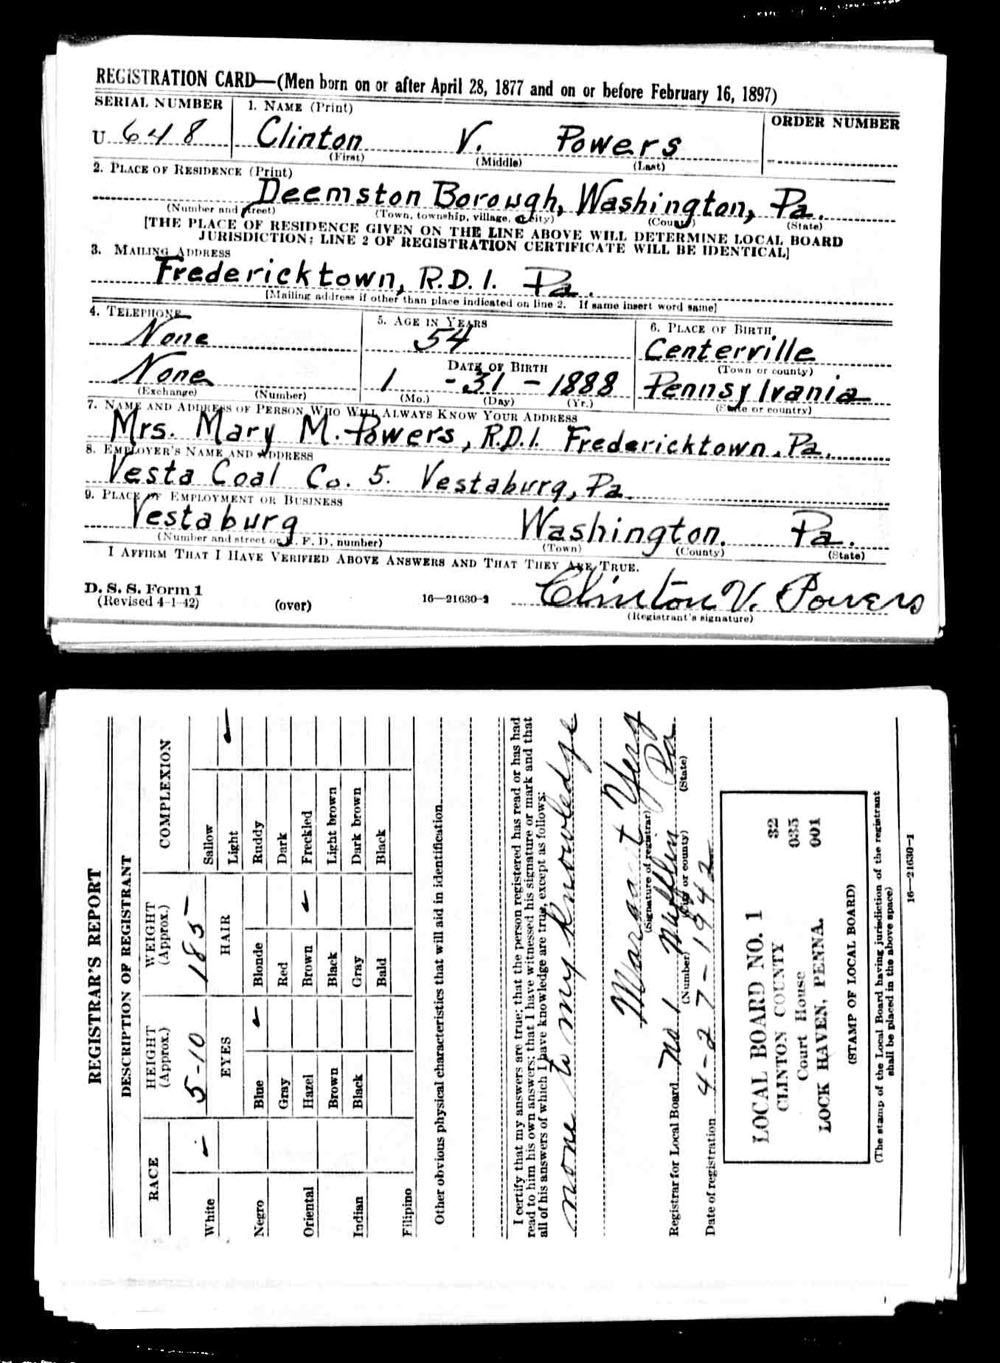 REGISTRATION CARD—(Men born on or after April 28, 1877 and on or before February 16, 1897)
SERIAL NUMBER
1. NAME (Print)
ORDER NUMBER
U 648
Clinton V. Powers
(First) (Middle) (Last)
2. PLACE OF RESIDENCE (Print)
Deemston Borough, Washington, Pa.
(Number and street) (Town, township, village, or city) (County) (State)
[THE PLACE OF RESIDENCE GIVEN ON THE LINE ABOVE WILL DETERMINE LOCAL BOARD
JURISDICTION; LINE 2 OF REGISTRATION CERTIFICATE WILL BE IDENTICAL]
3. MAILING ADDRESS
Fredericktown, R.D.1. Pa.
[Mailing address if other than place indicated on line 2. If same insert word same]
4. TELEPHONE
5. AGE IN YEARS
6. PLACE OF BIRTH
None
54
Centerville
DATE OF BIRTH
(Town or county)
None
1 - 31 - 1888
Pennsylvania
(Exchange) (Number)
(Mo.) (Day) (Yr.)
(State or country)
7. NAME AND ADDRESS OF PERSON WHO WILL ALWAYS KNOW YOUR ADDRESS
Mrs. Mary M. Powers, R.D.1. Fredericktown, Pa.
8. EMPLOYER'S NAME AND ADDRESS
Vesta Coal Co. 5. Vestaburg, Pa.
9. PLACE OF EMPLOYMENT OR BUSINESS
Vestaburg Washington. Pa.
(Number and street or R. F. D. number) (Town) (County) (State)
I AFFIRM THAT I HAVE VERIFIED ABOVE ANSWERS AND THAT THEY ARE TRUE.
D. S. S. Form 1
(Revised 4-1-42)
(over)
16—21630-2
Clinton V. Powers
(Registrant's signature)
REGISTRAR'S REPORT
DESCRIPTION OF REGISTRANT
RACE
HEIGHT (Approx.)
WEIGHT (Approx.)
COMPLEXION
5-10
185
White
EYES
HAIR
Sallow
Light
Negro
Blue
Blonde
Ruddy
Gray
Red
Dark
Oriental
Hazel
Brown
Freckled
Brown
Black
Light brown
Indian
Black
Gray
Dark brown
Bald
Black
Filipino
Other obvious physical characteristics that will aid in identification
I certify that my answers are true; that the person registered has read or has had
read to him his own answers; that I have witnessed his signature or mark and that
all of his answers of which I have knowledge are true, except as follows:
none to my knowledge
Margaret Yerg
(Signature of registrar)
Registrar for Local Board No. 1 Mifflin Pa.
(Number) (City or county) (State)
Date of registration 4-27-1942
LOCAL BOARD NO. 1 32
CLINTON COUNTY 035
Court House 001
LOCK HAVEN, PENNA.
(STAMP OF LOCAL BOARD)
(The stamp of the Local Board having jurisdiction of the registrant
shall be placed in the above space)
16—21630-1